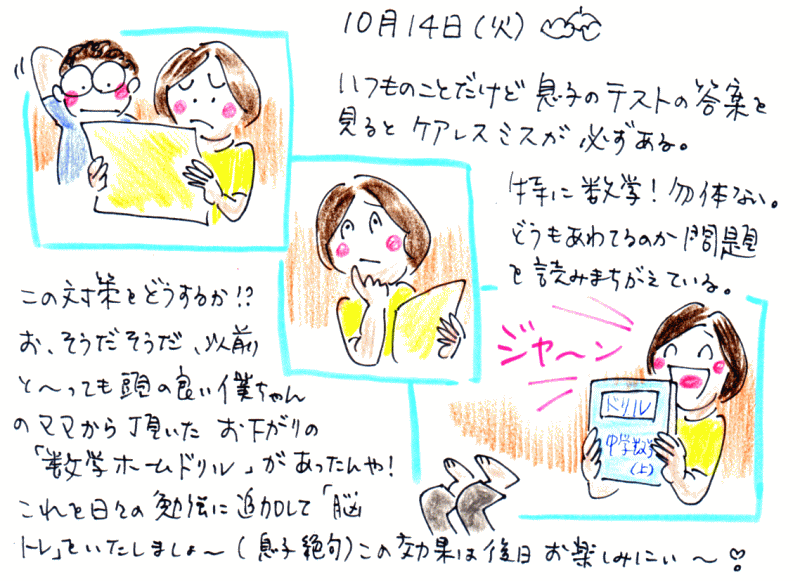 10月14日(火)
いつものことだけど 息子のテストの答案を
見ると ケアレスミスが 必ずある。
特に 数学！勿体ない。
どうもあわてるのか 問題
を読みまちがえている。
この対策をどうするか!?
お、そうだそうだ、以前
と〜っても頭の良い僕ちゃん
のママから頂いた お下がりの
「数学ホームドリル」があったんや！
これを日々の勉強に追加して「脳
トレ」をいたしましょ〜(息子絶句)この効果は後日 お楽しみにぃ〜
ジャ〜ン
ドリル
中学数学
(上)